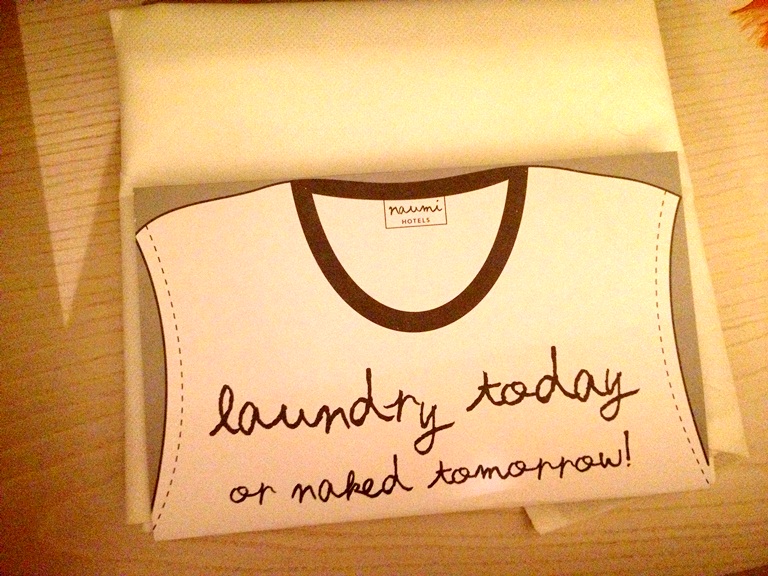 naumi
HOTELS
laundry today
or naked tomorrow!